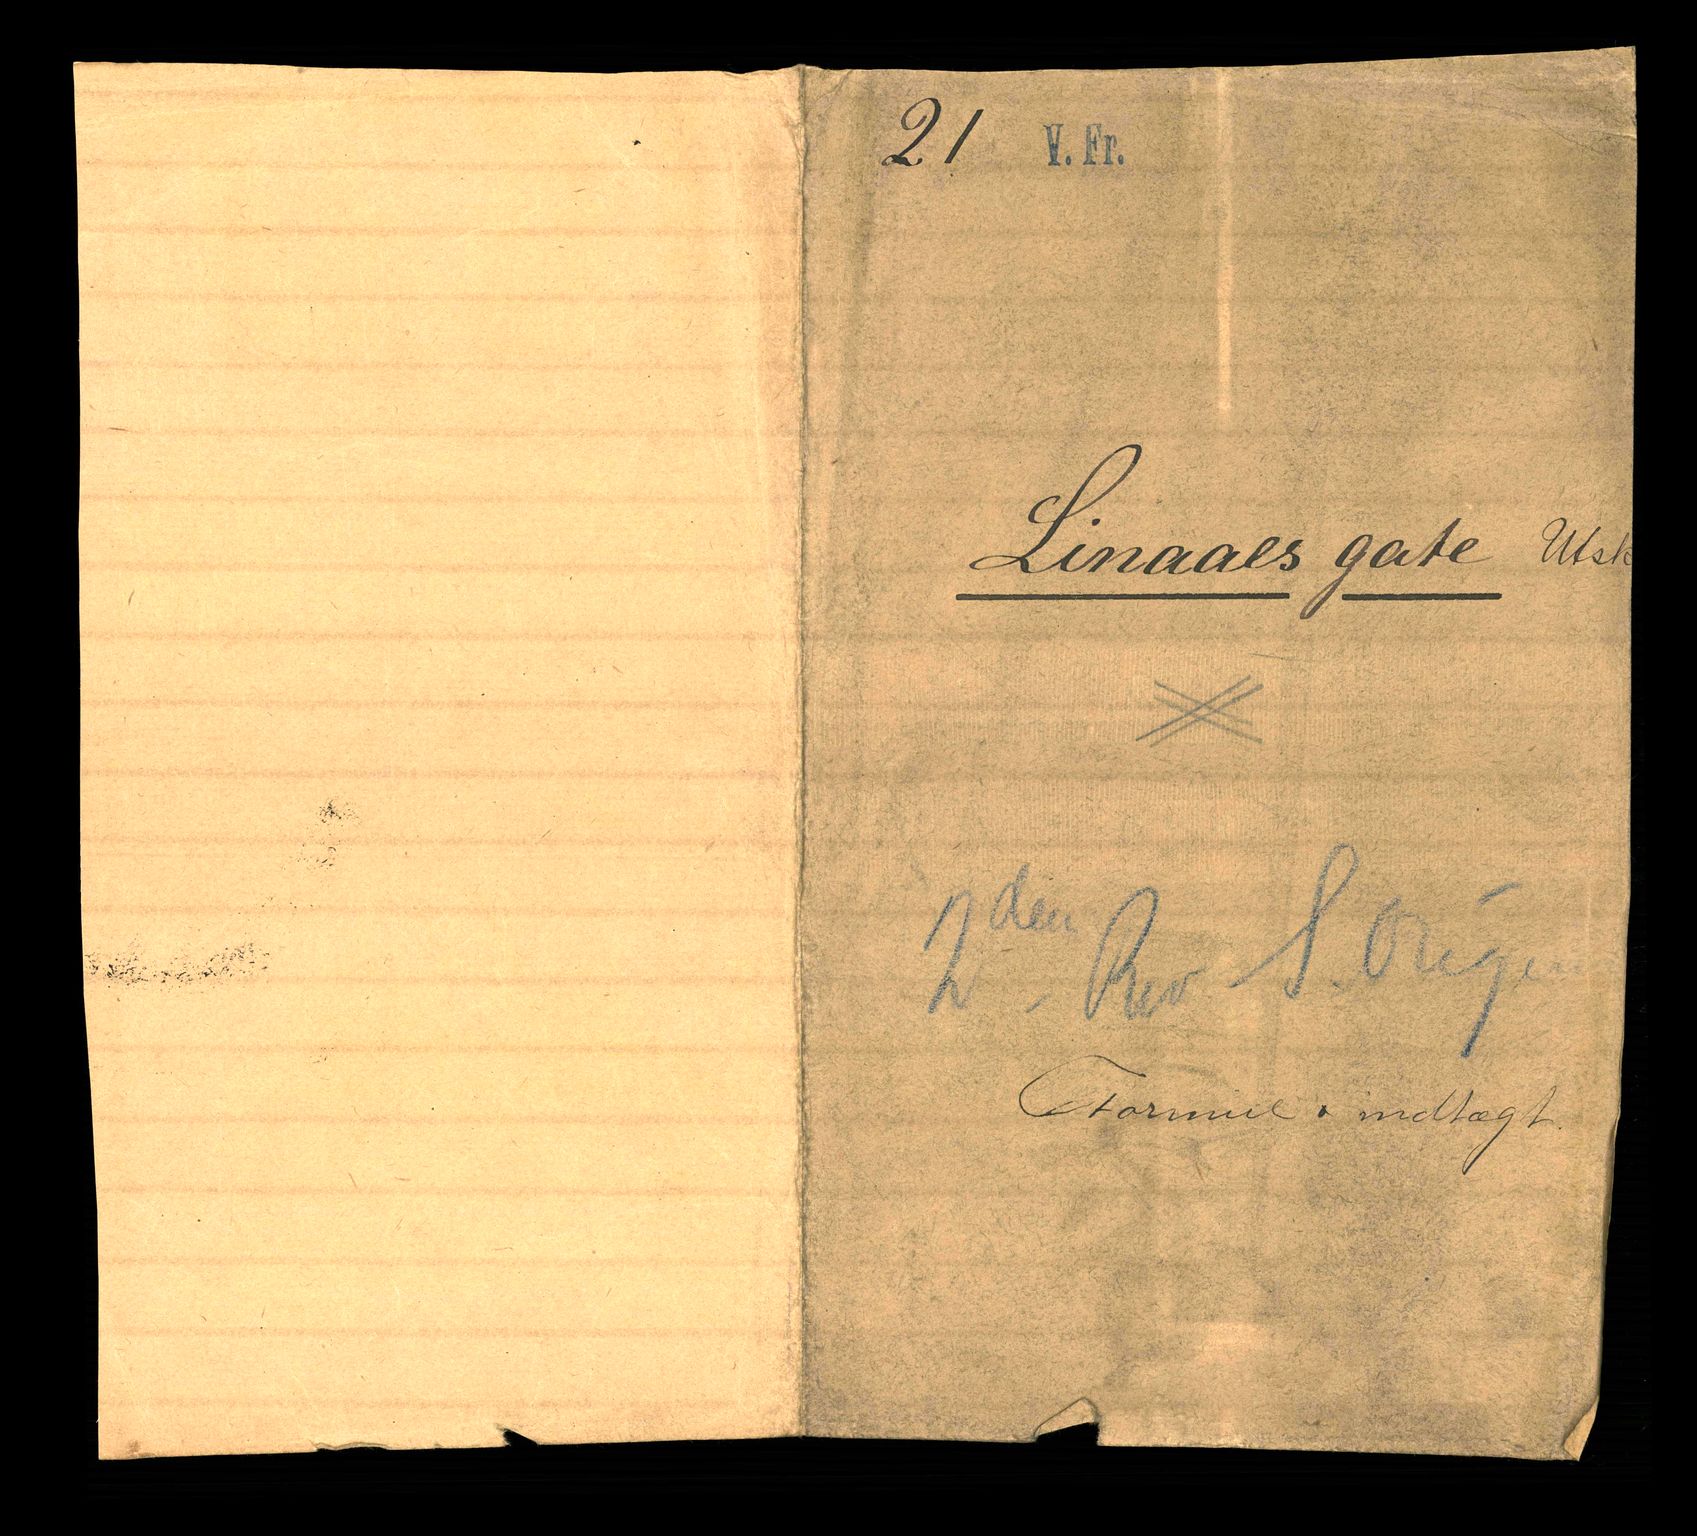 21 V. Fr.
Linaaes gate Utsk
2den Rev S. Origin
Formue . indtægt.